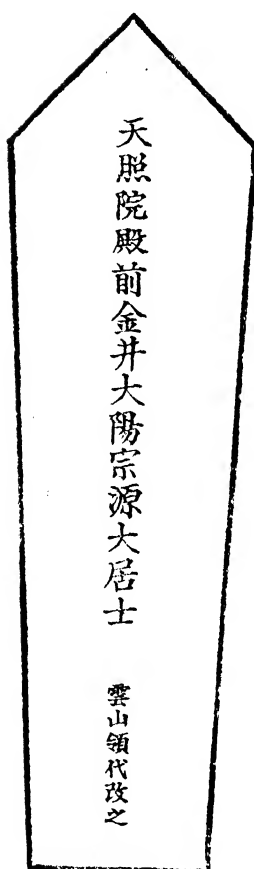 天照院殿前金井大陽宗源大居士
雲山領代改之